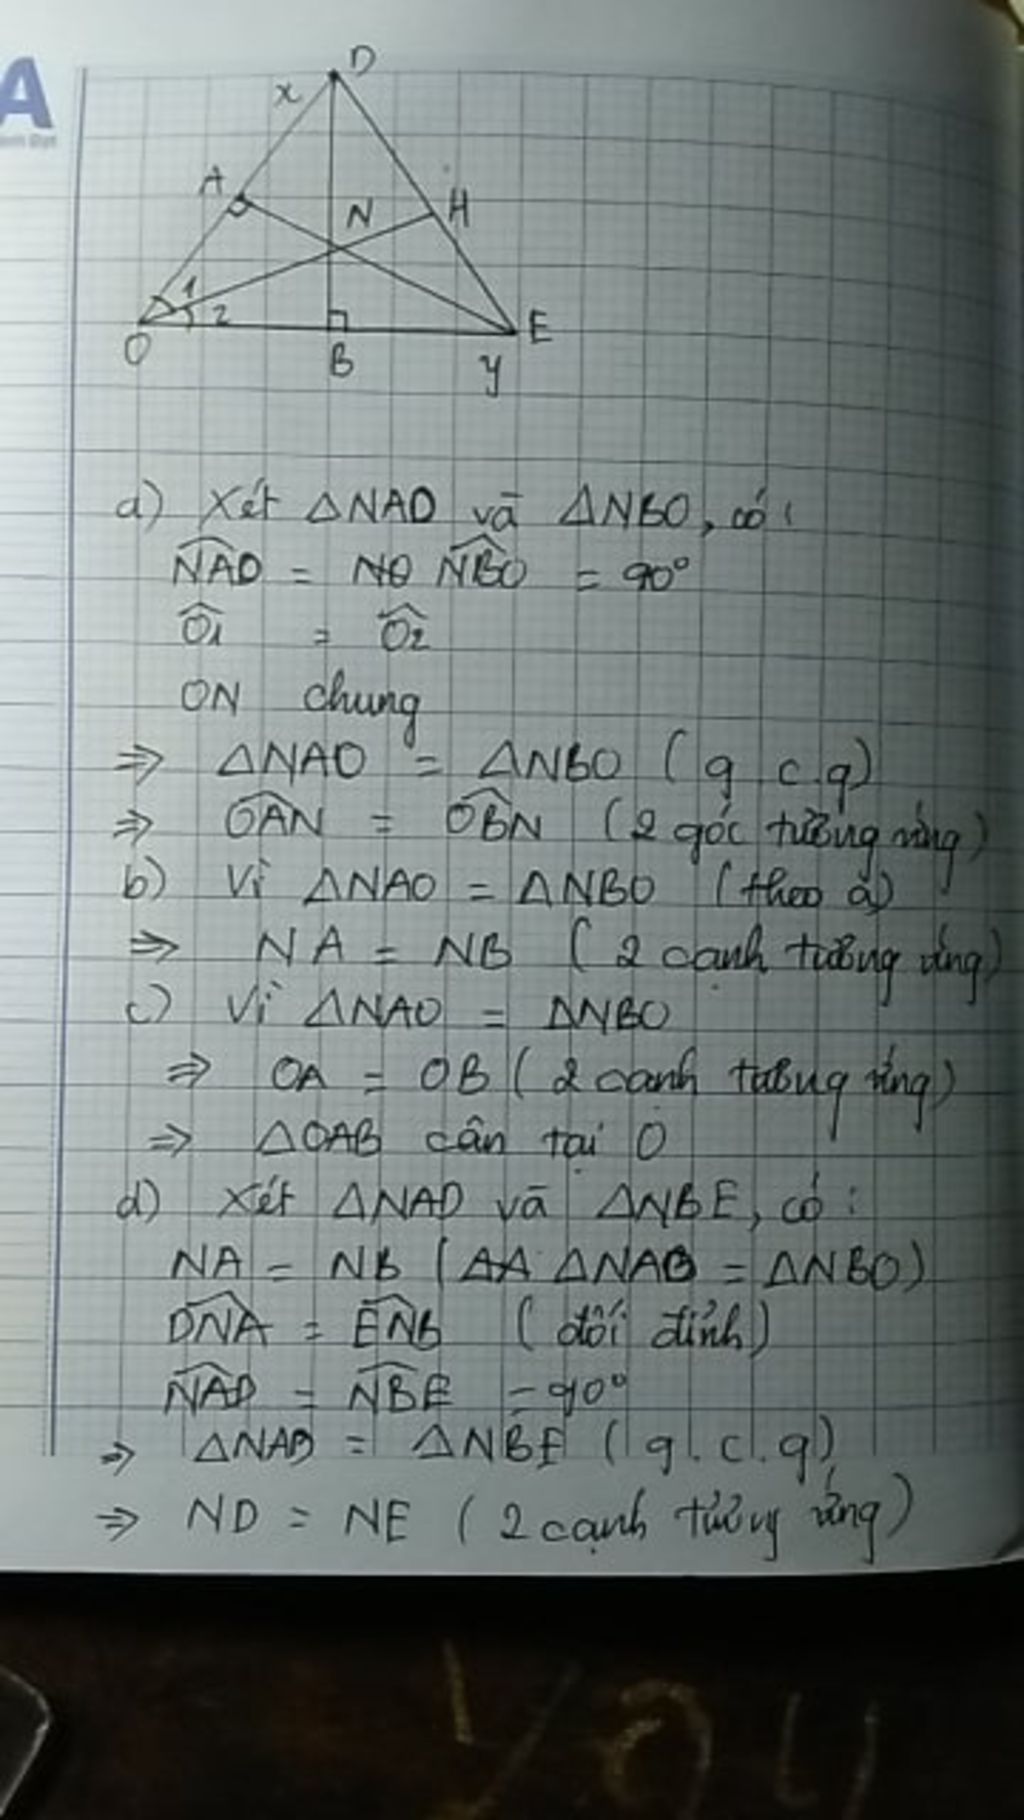 A
D
x
A
N
H
1
2
O
B
y
E
a) Xét ΔNAO và ΔNBO, có:
NAO = NBO = 90°
O1 = O2
ON chung
⇒ ΔNAO = ΔNBO (g c.g)
⇒ OAN = OBN (2 góc tương ứng)
b) Vì ΔNAO = ΔNBO (theo a)
⇒ NA = NB (2 cạnh tương ứng)
c) Vì ΔNAO = ΔNBO
⇒ OA = OB (2 cạnh tương ứng)
⇒ ΔOAB cân tại O
d) Xét ΔNAD và ΔNBE, có:
NA = NB (ΔNAO = ΔNBO)
DNA = ENB (đối đỉnh)
NAD = NBE = 90°
⇒ ΔNAD = ΔNBE (g.c.g)
⇒ ND = NE (2 cạnh tương ứng)